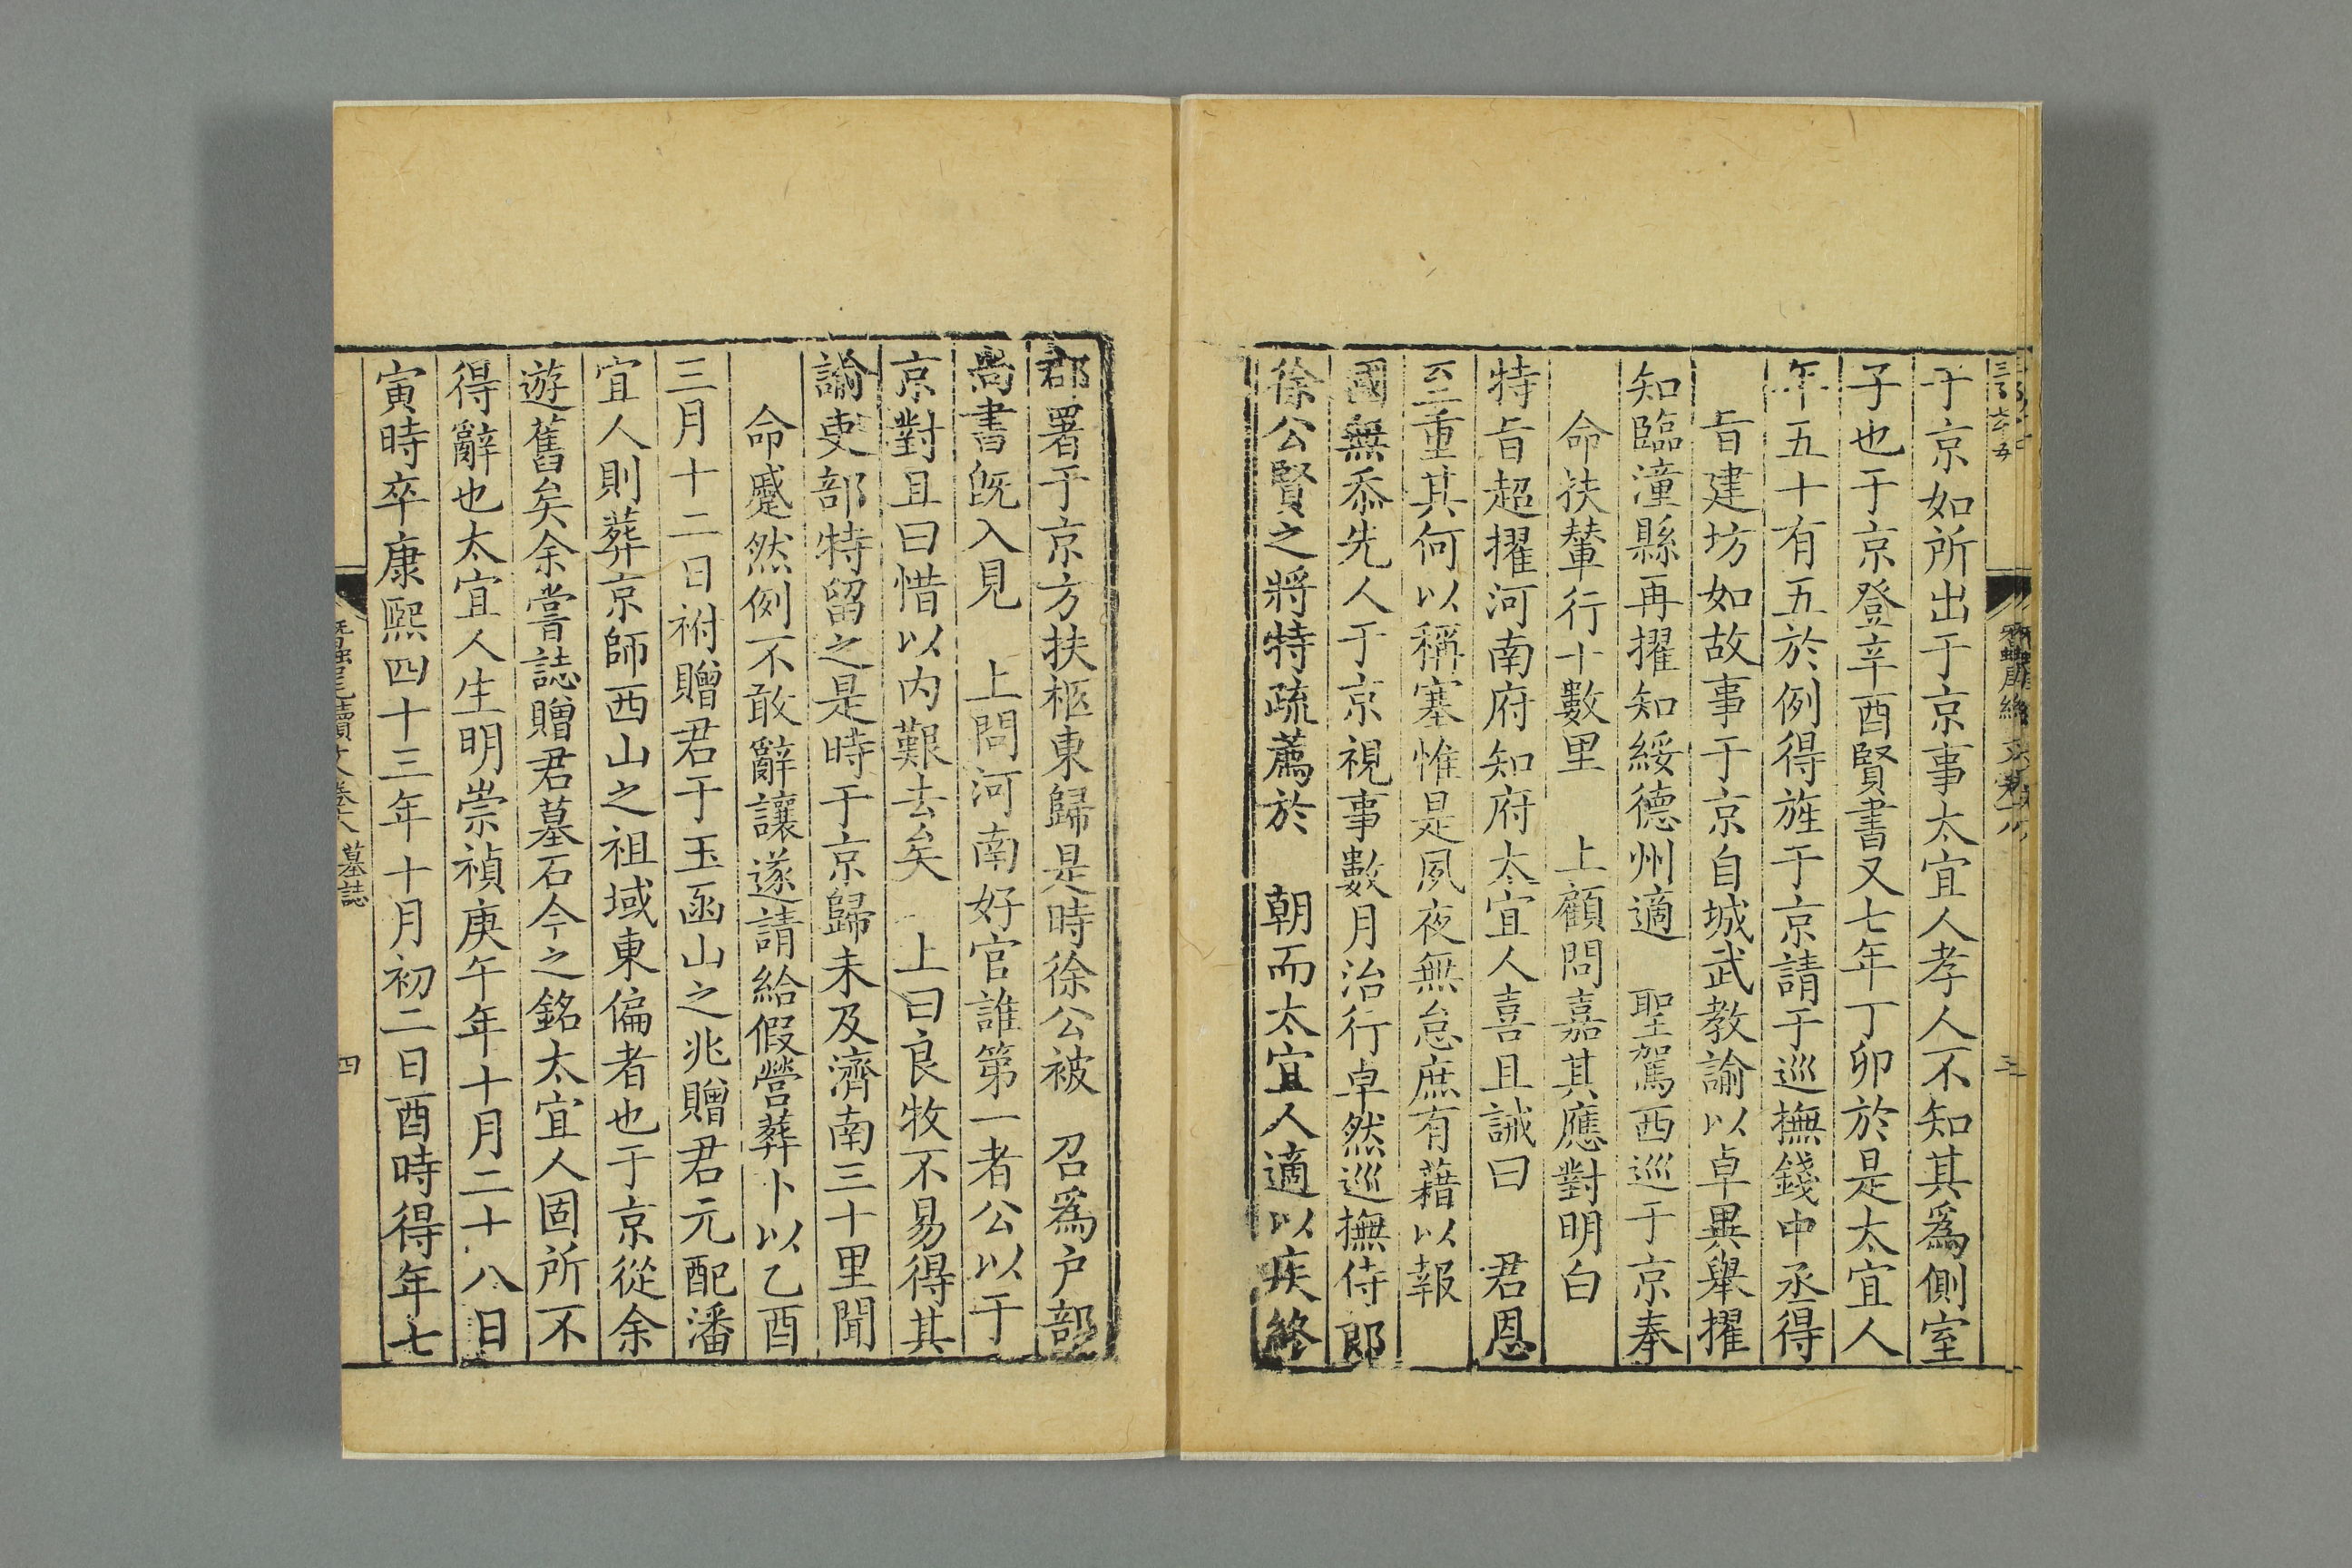 于京如所出于京事太宜人孝人不知其爲側室
子也于京登辛酉賢書又七年丁卯於是太宜人
年五十有五於例得旌于京請于巡撫錢中丞得
旨建坊如故事于京自城武教諭以卓異舉擢
知臨潼縣再擢知綏德州適 聖駕西巡于京奏
命扶輦行十數里 上顧問嘉其應對明白
特旨超擢河南府知府太宜人喜且誡曰 君恩
至重其何以稱塞惟是夙夜無怠庶有藉以報
國無忝先人于京視事數月治行卓然巡撫侍郎
徐公賢之將特疏薦於 朝而太宜人適以疾終
郡署于京方扶柩東歸是時徐公被 召爲户部
尚書旣入見 上問河南好官誰第一者公以于
京對且曰惜以内艱去矣 上曰良牧不易得其
諭吏部特留之是時于京歸未及濟南三十里聞
命蹙然例不敢辭讓遂請給假營葬卜以乙酉
三月十二日祔贈君于玉函山之兆贈君元配潘
宜人則葬京師西山之祖域東偏者也于京從余
遊舊矣余嘗誌贈君墓石今之銘太宜人固所不
得辭也太宜人生明崇禎庚午年十月二十八日
寅時卒康熙四十三年十月初二日酉時得年七
蠶尾續文卷十八 墓誌
四